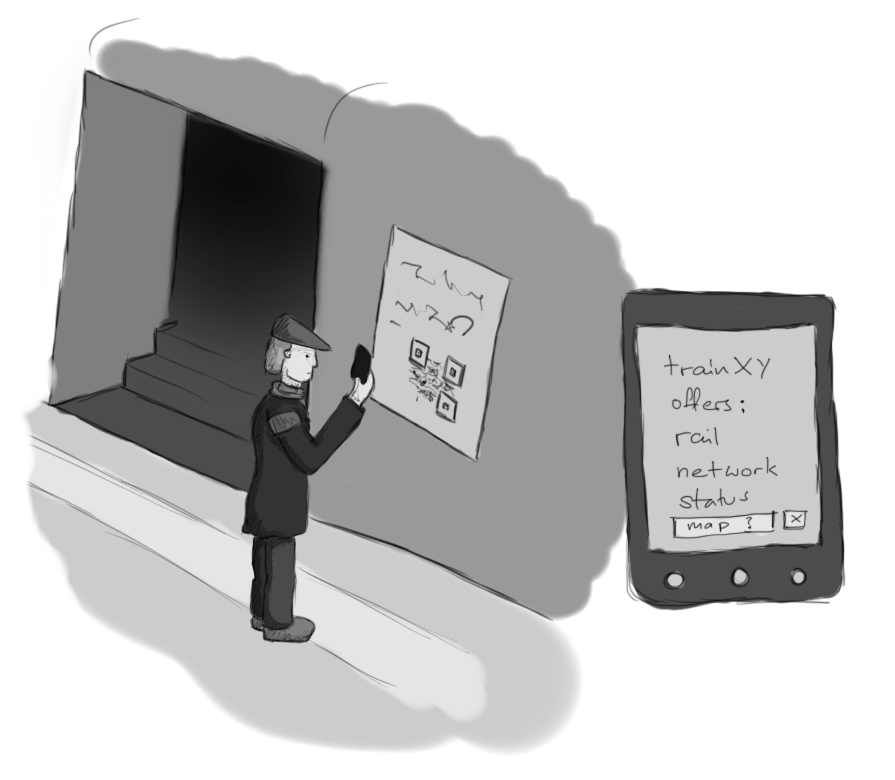 trainXY
offers:
rail
network
status
map ? X